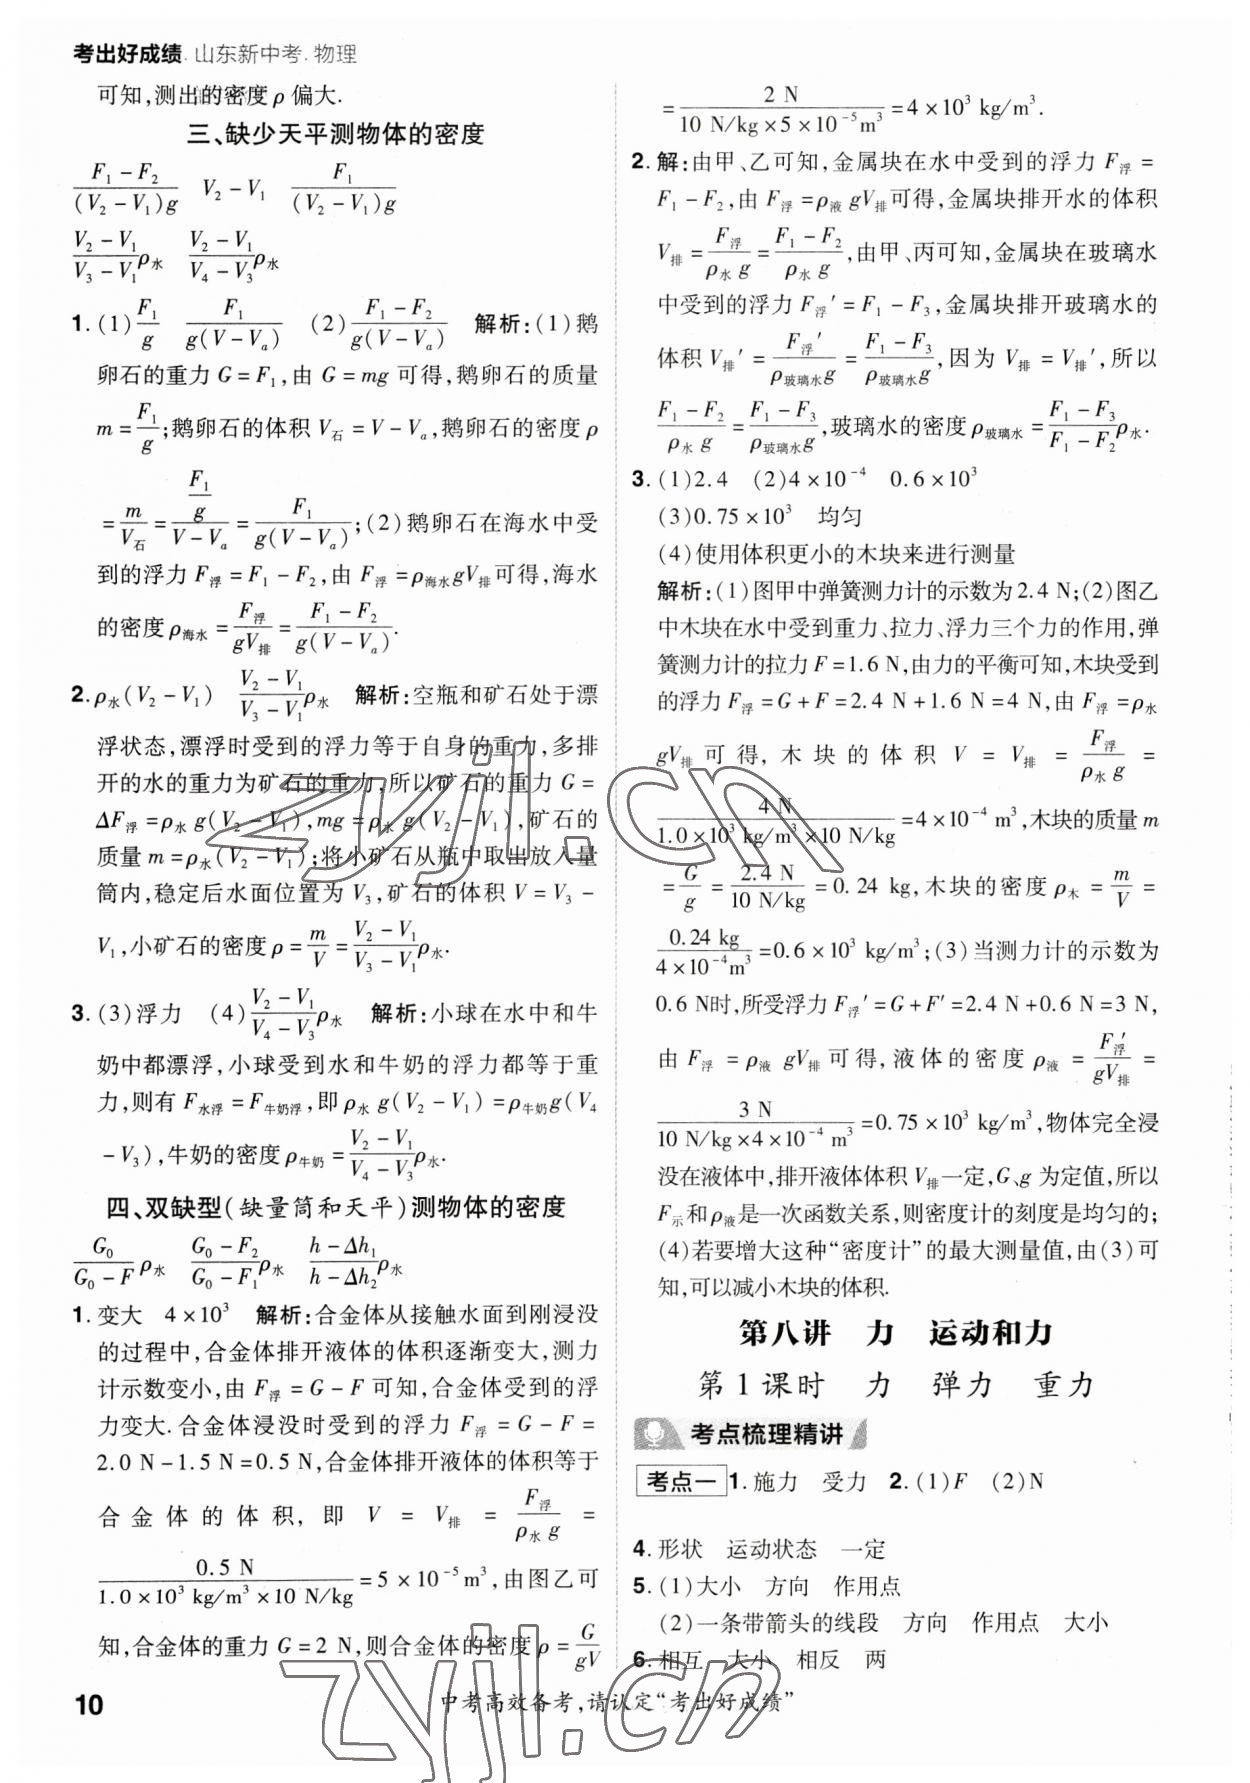 考出好成绩.山东新中考.物理
可知,测出的密度 ρ 偏大.
三、缺少天平测物体的密度
(F₁-F₂)/((V₂-V₁)g)　V₂-V₁　F₁/((V₂-V₁)g)
(V₂-V₁)/(V₃-V₁)ρ水　(V₂-V₁)/(V₄-V₃)ρ水
1.(1)F₁/g　F₁/(g(V-Vₐ))　(2)(F₁-F₂)/(g(V-Vₐ))　解析:(1)鹅
卵石的重力 G=F₁,由 G=mg 可得,鹅卵石的质量
m=F₁/g;鹅卵石的体积 V石=V-Vₐ,鹅卵石的密度 ρ
=m/V石=(F₁/g)/(V-Vₐ)=F₁/(g(V-Vₐ));(2)鹅卵石在海水中受
到的浮力 F浮=F₁-F₂,由 F浮=ρ海水gV排可得,海水
的密度 ρ海水=F浮/(gV排)=(F₁-F₂)/(g(V-Vₐ)).
2.ρ水(V₂-V₁)　(V₂-V₁)/(V₃-V₁)ρ水　解析:空瓶和矿石处于漂
浮状态,漂浮时受到的浮力等于自身的重力,多排
开的水的重力为矿石的重力,所以矿石的重力 G=
ΔF浮=ρ水 g(V₂-V₁),mg=ρ水 g(V₂-V₁),矿石的
质量 m=ρ水(V₂-V₁);将小矿石从瓶中取出放入量
筒内,稳定后水面位置为 V₃,矿石的体积 V=V₃-
V₁,小矿石的密度 ρ=m/V=(V₂-V₁)/(V₃-V₁)ρ水.
3.(3)浮力　(4)(V₂-V₁)/(V₄-V₃)ρ水　解析:小球在水中和牛
奶中都漂浮,小球受到水和牛奶的浮力都等于重
力,则有 F水浮=F牛奶浮,即 ρ水 g(V₂-V₁)=ρ牛奶g(V₄
-V₃),牛奶的密度 ρ牛奶=(V₂-V₁)/(V₄-V₃)ρ水.
四、双缺型(缺量筒和天平)测物体的密度
G₀/(G₀-F)ρ水　(G₀-F₂)/(G₀-F₁)ρ水　(h-Δh₁)/(h-Δh₂)ρ水
1.变大　4×10³　解析:合金体从接触水面到刚浸没
的过程中,合金体排开液体的体积逐渐变大,测力
计示数变小,由 F浮=G-F 可知,合金体受到的浮
力变大.合金体浸没时受到的浮力 F浮=G-F=
2.0 N-1.5 N=0.5 N,合金体排开液体的体积等于
合金体的体积,即 V=V排=F浮/(ρ水 g)=
0.5 N/(1.0×10³ kg/m³×10 N/kg)=5×10⁻⁵m³,由图乙可
知,合金体的重力 G=2 N,则合金体的密度 ρ=G/(gV)
=2 N/(10 N/kg×5×10⁻⁵m³)=4×10³ kg/m³.
2.解:由甲、乙可知,金属块在水中受到的浮力 F浮=
F₁-F₂,由 F浮=ρ液 gV排可得,金属块排开水的体积
V排=F浮/(ρ水 g)=(F₁-F₂)/(ρ水 g),由甲、丙可知,金属块在玻璃水
中受到的浮力 F浮′=F₁-F₃,金属块排开玻璃水的
体积 V排′=F浮′/(ρ玻璃水g)=(F₁-F₃)/(ρ玻璃水g),因为 V排=V排′,所以
(F₁-F₂)/(ρ水 g)=(F₁-F₃)/(ρ玻璃水g),玻璃水的密度 ρ玻璃水=(F₁-F₃)/(F₁-F₂)ρ水.
3.(1)2.4　(2)4×10⁻⁴　0.6×10³
(3)0.75×10³　均匀
(4)使用体积更小的木块来进行测量
解析:(1)图甲中弹簧测力计的示数为 2.4 N;(2)图乙
中木块在水中受到重力、拉力、浮力三个力的作用,弹
簧测力计的拉力 F=1.6 N,由力的平衡可知,木块受到
的浮力 F浮=G+F=2.4 N+1.6 N=4 N,由 F浮=ρ水
gV排可得,木块的体积 V=V排=F浮/(ρ水 g)=
4 N/(1.0×10³ kg/m³×10 N/kg)=4×10⁻⁴ m³,木块的质量 m
=G/g=2.4 N/(10 N/kg)=0.24 kg,木块的密度 ρ木=m/V=
0.24 kg/(4×10⁻⁴m³)=0.6×10³ kg/m³;(3)当测力计的示数为
0.6 N时,所受浮力 F浮′=G+F′=2.4 N+0.6 N=3 N,
由 F浮=ρ液 gV排可得,液体的密度 ρ液=F浮′/(gV排)=
3 N/(10 N/kg×4×10⁻⁴ m³)=0.75×10³ kg/m³,物体完全浸
没在液体中,排开液体体积 V排一定,G、g 为定值,所以
F示和ρ液是一次函数关系,则密度计的刻度是均匀的;
(4)若要增大这种“密度计”的最大测量值,由(3)可
知,可以减小木块的体积.
第八讲　力　运动和力
第1课时　力　弹力　重力
考点梳理精讲
考点一 1.施力　受力　2.(1)F　(2)N
4.形状　运动状态　一定
5.(1)大小　方向　作用点
(2)一条带箭头的线段　方向　作用点　大小
6.相互　大小　相反　两
10　中考高效备考,请认定“考出好成绩”
zyjl.cn
zyjl.cn